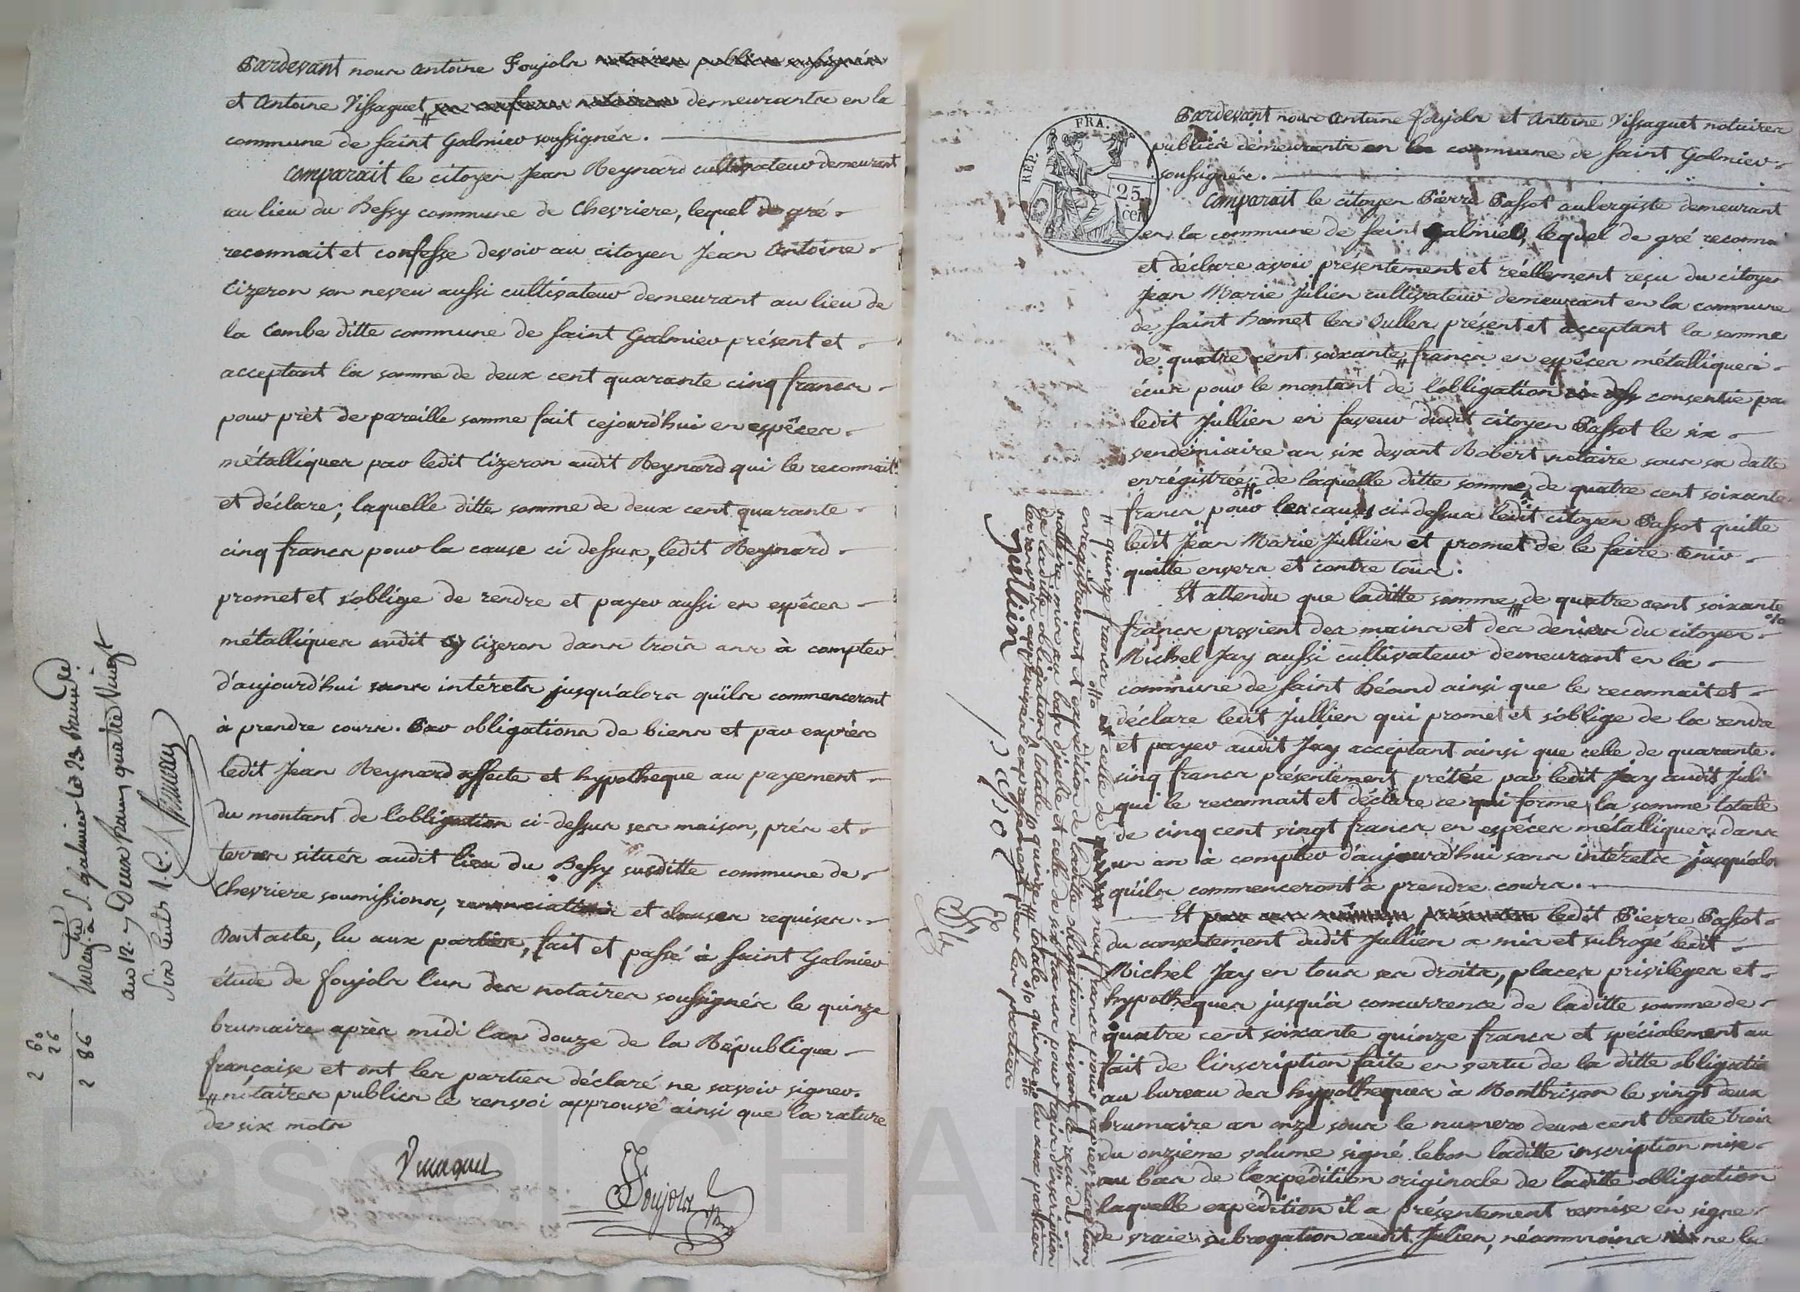 Pardevant nous Antoine Foujols notaires publics soussignés
et Antoine Vissaguet, demeurants en la
commune de saint Galmier soussignés.
Comparait le citoyen Jean Reynard cultivateur demeurant
au lieu du Bessy commune de Chevriere, lequel de gré
reconnait et confesse devoir au citoyen Jean Antoine
Cizeron son neveu aussi cultivateur demeurant au lieu de
la Combe ditte commune de saint Galmier présent et
acceptant la somme de deux cent quarante cinq francs
pour prèt de pareille somme fait cejourd'hui en espêces
métalliques par ledit Cizeron audit Reynard qui le reconnait
et déclare; laquelle ditte somme de deux cent quarante
cinq francs pour la cause ci dessus, ledit Reynard
promet et s'oblige de rendre et payer aussi en espêces
métalliques audit Cizeron dans trois ans à compter
d'aujourd'hui sans intérets jusqu'alors qu'ils commenceront
à prendre cours. Par obligations de biens et par exprès
ledit Jean Reynard affecte et hypotheque au payement
du montant de l'obligation ci-dessus ses maison, prés et
terres situés audit lieu du Bessy susditte commune de
Chevriere soumissions, renonciations et clauses requises.
Dont acte, lu aux parties, fait et passé à saint Galmier
étude de foujols l'un des notaires soussignés le quinze
brumaire après midi l'an douze de la République
française et ont les parties déclaré ne savoir signer.
notaires publics le renvoi approuvé ainsi que la rature
de six mots
Vissaguet
Foujols
Enregtré à St galmier le 23 Brumre
an 12. Deux francs quatre Vingt
Six cents
2 60
26
2 86
REP. FRA.
25
cen
Pardevant nous Antoine foujols et Antoine Vissaguet notaires
publics demeurants en la commune de saint Galmier
soussignés.
Comparait le citoyen Pierre Passot aubergiste demeurant
en la commune de saint Galmier, lequel de gré reconnai
et déclare avoir présentement et réellement reçu du citoyen
Jean Marie Julien cultivateur demeurant en la commune
de saint Bonnet les Oulles présent et acceptant la somme
de quatre cent soixante francs en espêces métalliques
écus pour le montant de l'obligation consentie par
ledit Jullien en faveur dudit citoyen Passot le six
vendémiaire an six devant Robert notaire sous sa datte
enrégistrée; de laquelle ditte somme de quatre cent soixante
francs pour les causes ci-dessus ledit citoyen Passot quitte
ledit Jean Marie Jullien et promet de le faire tenir
quitte envers et contre tous.
Et attendu que laditte somme de quatre cent soixante
francs provient des mains et des deniers du citoyen
Michel Jay aussi cultivateur demeurant en la
commune de saint Héand ainsi que le reconnait et
déclare ledit Jullien qui promet et s'oblige de la rendre
et payer audit Jay acceptant ainsi que celle de quarante
cinq francs présentement prêtée par ledit Jay audit Juli
qui le reconnait et déclare ce qui forme la somme totale
de cinq cent vingt francs en espêces métalliques dans
un an à compter d'aujourd'hui sans intérets jusqu'alo
qu'ils commenceront à prendre cours.
Et ledit Pierre Passot
du consentement dudit Jullien a mis et subrogé ledit
Michel Jay en tous ses droits, places privilèges et
hypotheques jusqu'à concurrence de laditte somme de
quatre cent soixante quinze francs et spécialement au
fait de l'inscription faite en vertu de la ditte obligatio
au bureau des hypotheques à Montbrison le vingt deux
brumaire an onze sous le numero deux cent trente trois
du onzième volume signé lebon laditte inscription mise
au bas de l'expédition originale de laditte obligation
laquelle expédition il a présentement remise en signe
de vraie subrogation audit Julien, néammoins ne lu
quinze francs et celle de neuf francs pour papier, réception
enregistrement et expédition de laditte obligation suivant le reçu du
notaire mis au bas d'icelle et celle de six francs pour frais d'inscription
Jullien
Pascal CHAMEYRON